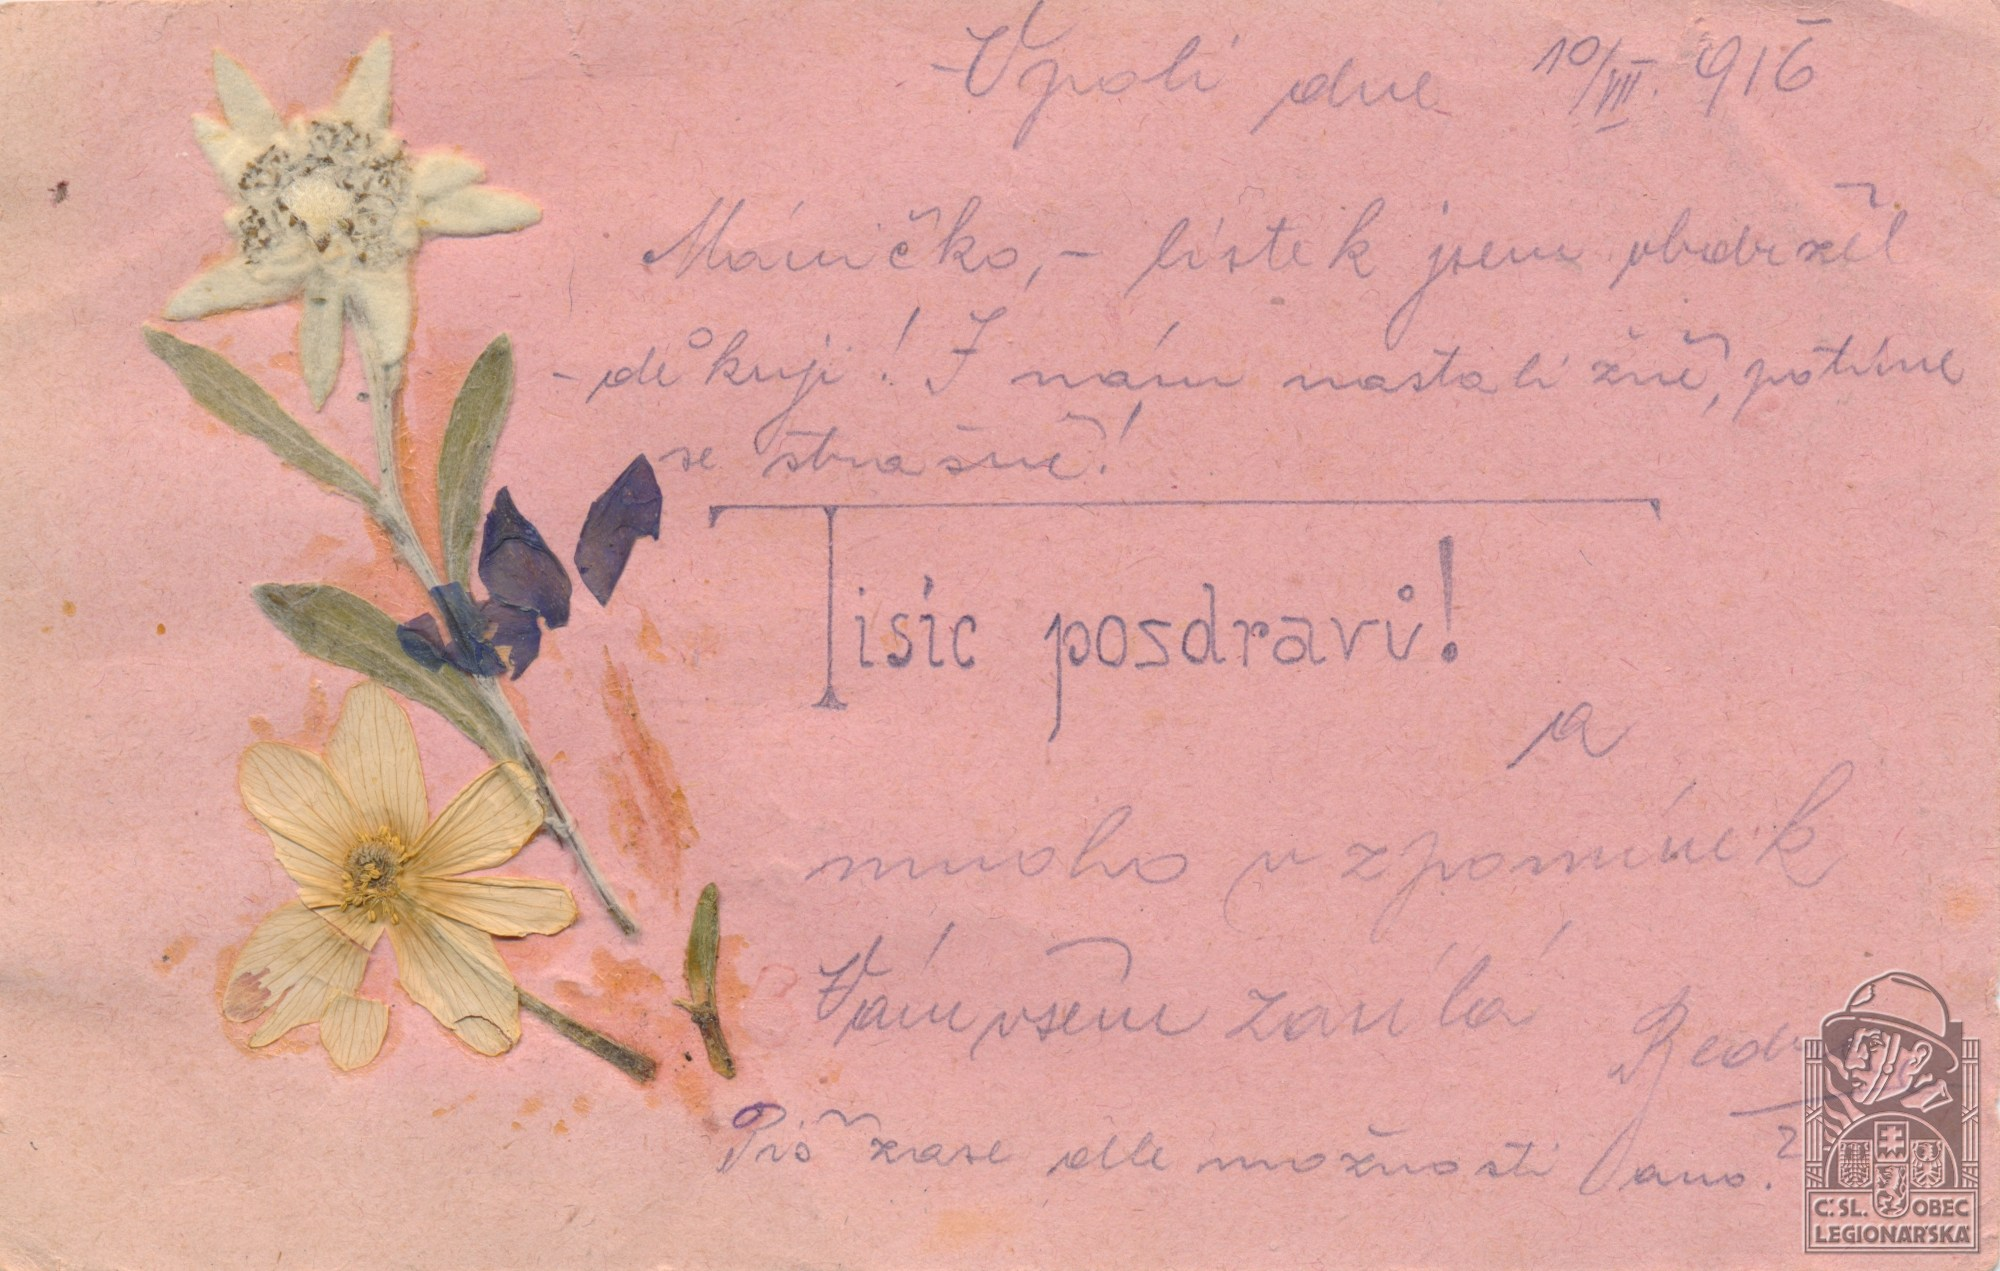 V poli dne 10/VII. 916
Máničko, – lístek jsem obdržel
– děkuji! I nám nastali žně, potíme
se strašně!
Tisíc pozdravů!
a
mnoho vzpomínek
Vám všem zasílá
Piš zase dle možnosti
Č.SL. OBEC
LEGIONÁŘSKÁ